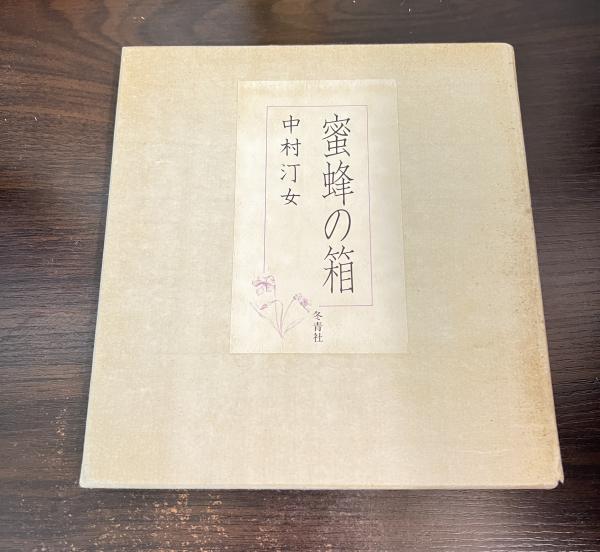 蜜蜂の箱
中村汀女
冬青社